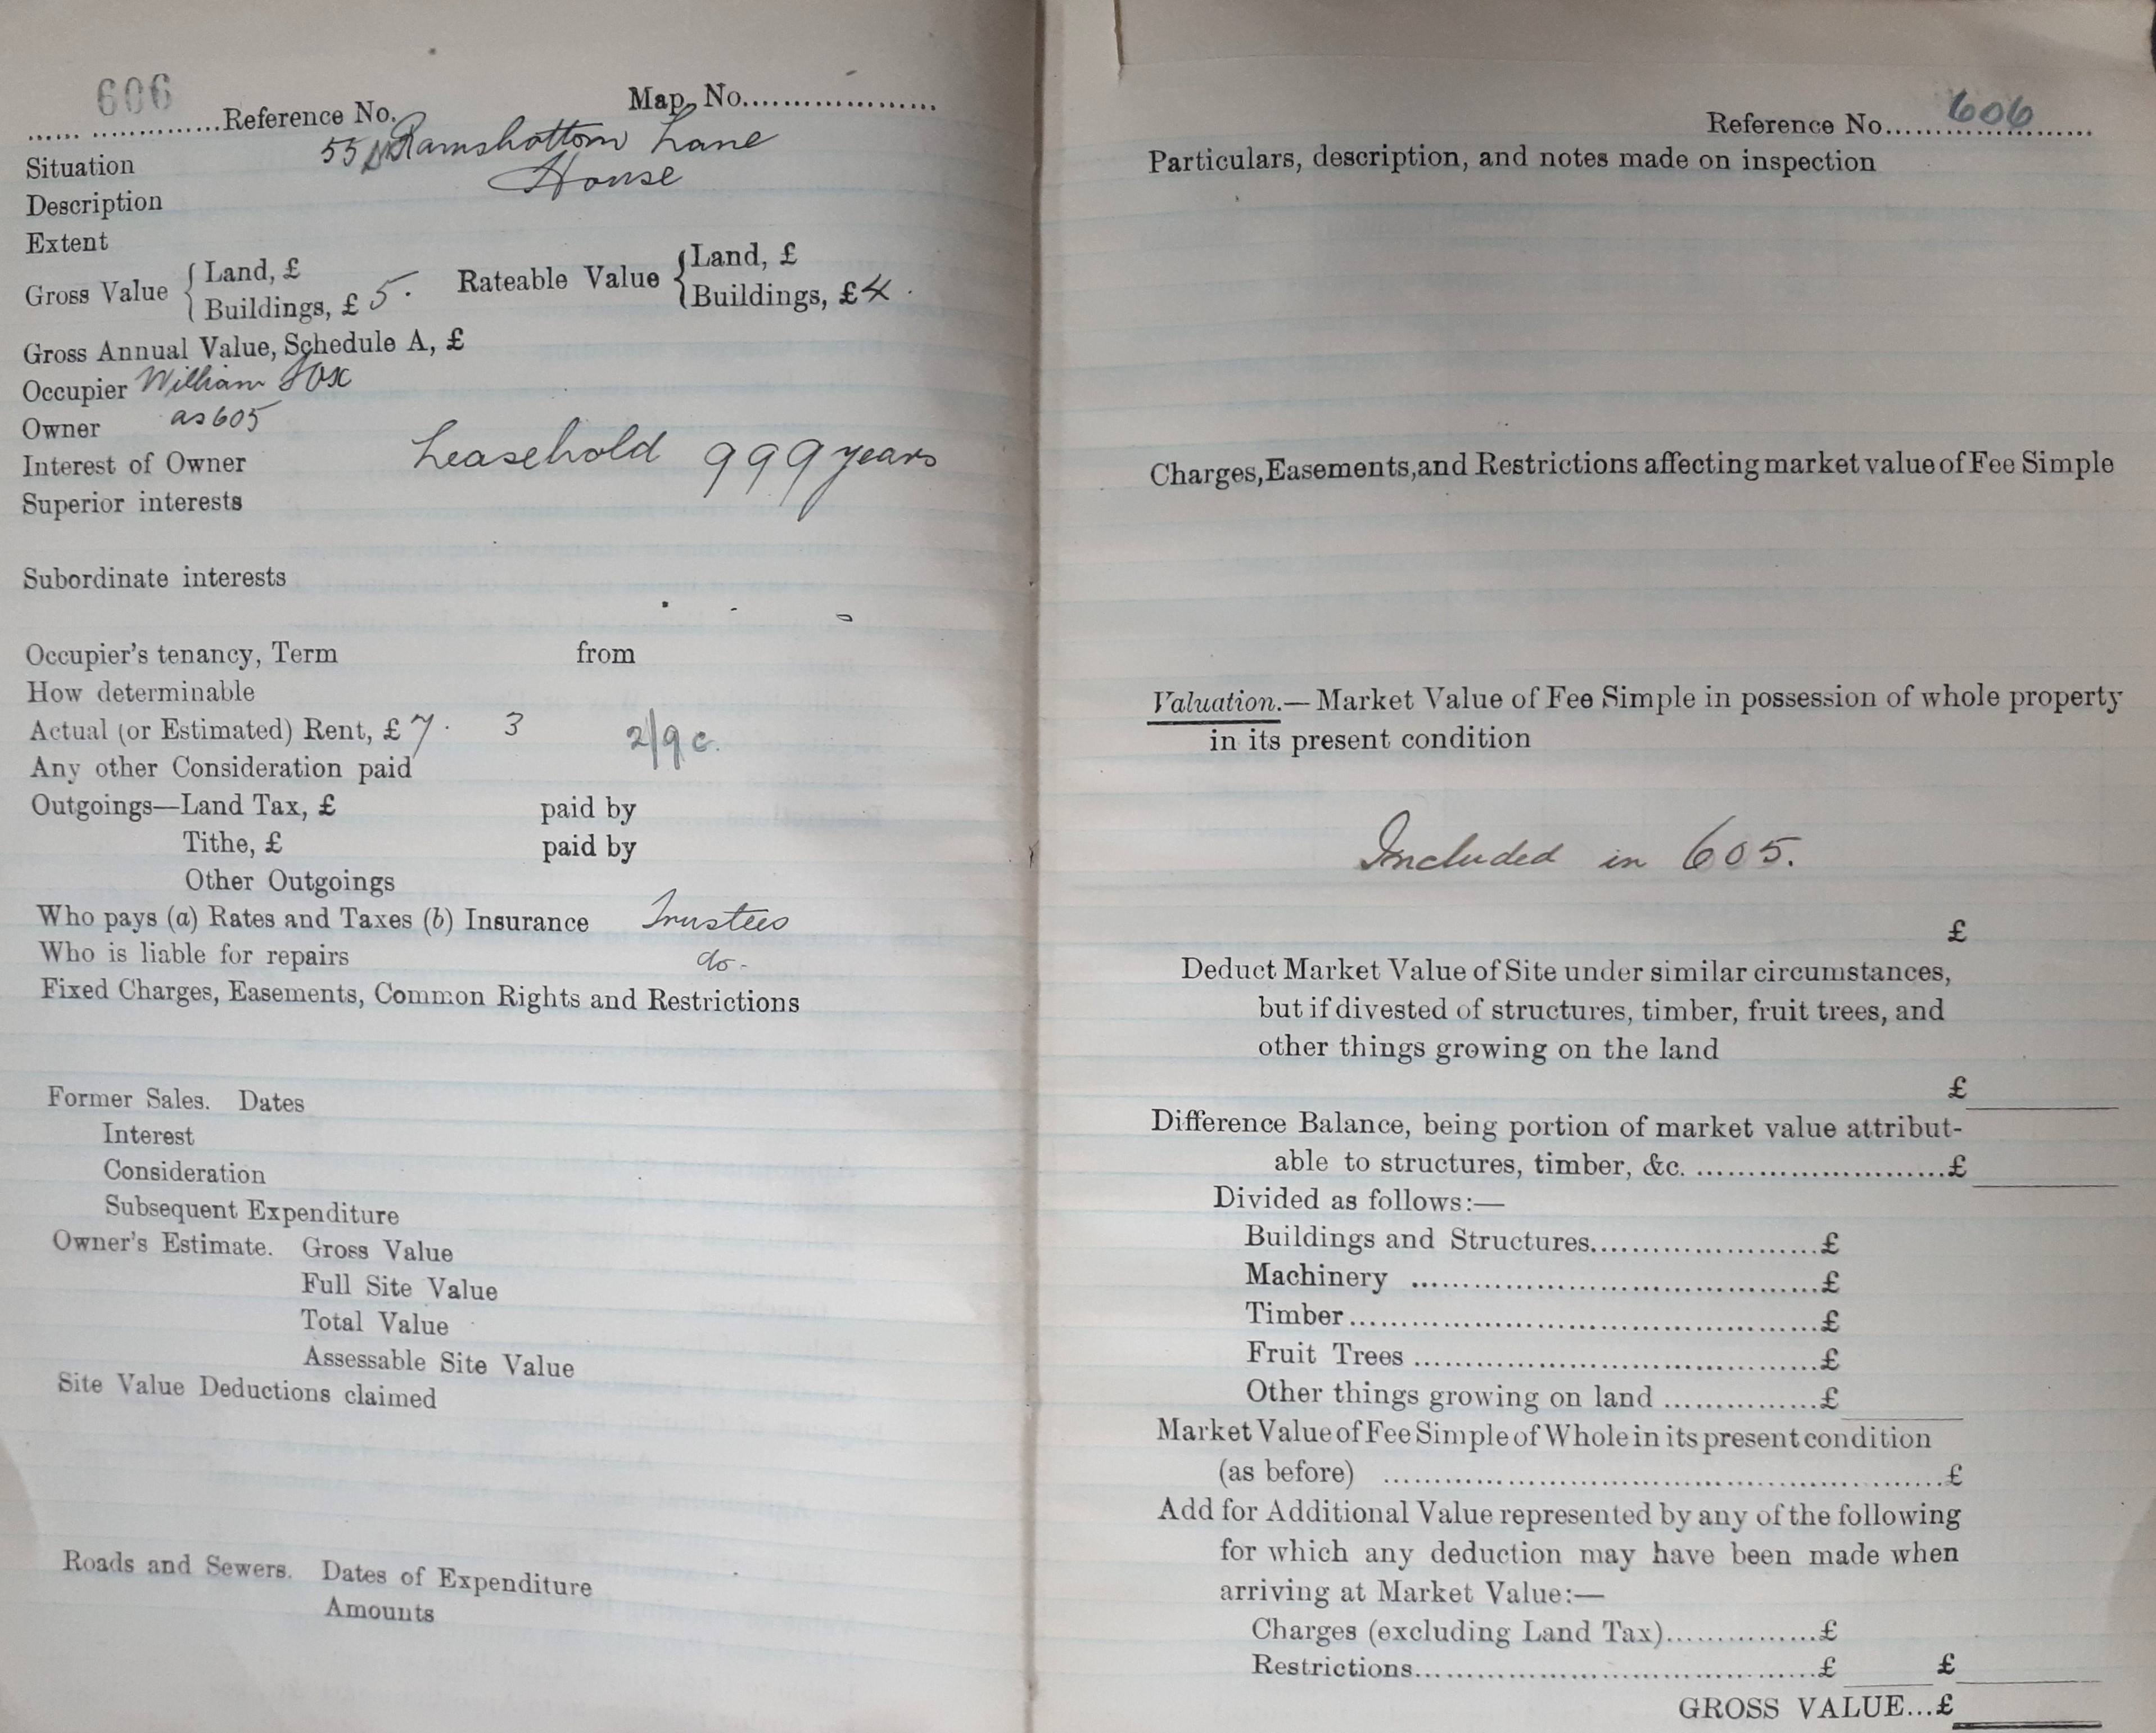 606
Reference No. Map No.
Situation 55 Ramsbottom Lane
Description House
Extent
Gross Value { Land, £ Rateable Value { Land, £
Buildings, £ 5. Buildings, £ 4.
Gross Annual Value, Schedule A, £
Occupier William Fox
Owner as 605
Interest of Owner Leasehold 999 years
Superior interests
Subordinate interests
Occupier's tenancy, Term from
How determinable
Actual (or Estimated) Rent, £ 7. 3 2/9 c.
Any other Consideration paid
Outgoings—Land Tax, £ paid by
Tithe, £ paid by
Other Outgoings
Who pays (a) Rates and Taxes (b) Insurance Trustees
Who is liable for repairs do-
Fixed Charges, Easements, Common Rights and Restrictions
Former Sales. Dates
Interest
Consideration
Subsequent Expenditure
Owner's Estimate. Gross Value
Full Site Value
Total Value
Assessable Site Value
Site Value Deductions claimed
Roads and Sewers. Dates of Expenditure
Amounts
Reference No. 606
Particulars, description, and notes made on inspection
Charges, Easements, and Restrictions affecting market value of Fee Simple
Valuation.—Market Value of Fee Simple in possession of whole property
in its present condition
Included in 605.
£
Deduct Market Value of Site under similar circumstances,
but if divested of structures, timber, fruit trees, and
other things growing on the land
£
Difference Balance, being portion of market value attribut-
able to structures, timber, &c. £
Divided as follows:—
Buildings and Structures £
Machinery £
Timber £
Fruit Trees £
Other things growing on land £
Market Value of Fee Simple of Whole in its present condition
(as before) £
Add for Additional Value represented by any of the following
for which any deduction may have been made when
arriving at Market Value:—
Charges (excluding Land Tax) £
Restrictions £ £
GROSS VALUE...£